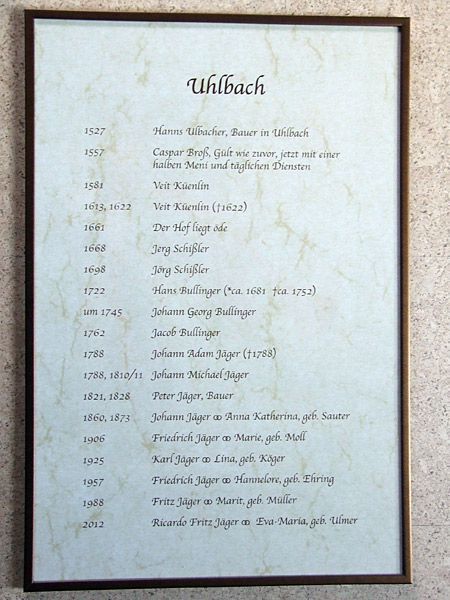 Uhlbach
1527 Hanns Ulbacher, Bauer in Uhlbach
1557 Caspar Broß, Gült wie zuvor, jetzt mit einer
halben Meni und täglichen Diensten
1581 Veit Küenlin
1613, 1622 Veit Küenlin (†1622)
1661 Der Hof liegt öde
1668 Jerg Schißler
1698 Jörg Schißler
1722 Hans Bullinger (*ca. 1681 †ca. 1752)
um 1745 Johann Georg Bullinger
1762 Jacob Bullinger
1788 Johann Adam Jäger (†1788)
1788, 1810/11 Johann Michael Jäger
1821, 1828 Peter Jäger, Bauer
1860, 1873 Johann Jäger ∞ Anna Katherina, geb. Sauter
1906 Friedrich Jäger ∞ Marie, geb. Moll
1925 Karl Jäger ∞ Lina, geb. Köger
1957 Friedrich Jäger ∞ Hannelore, geb. Ehring
1988 Fritz Jäger ∞ Marit, geb. Müller
2012 Ricardo Fritz Jäger ∞ Eva-Maria, geb. Ulmer